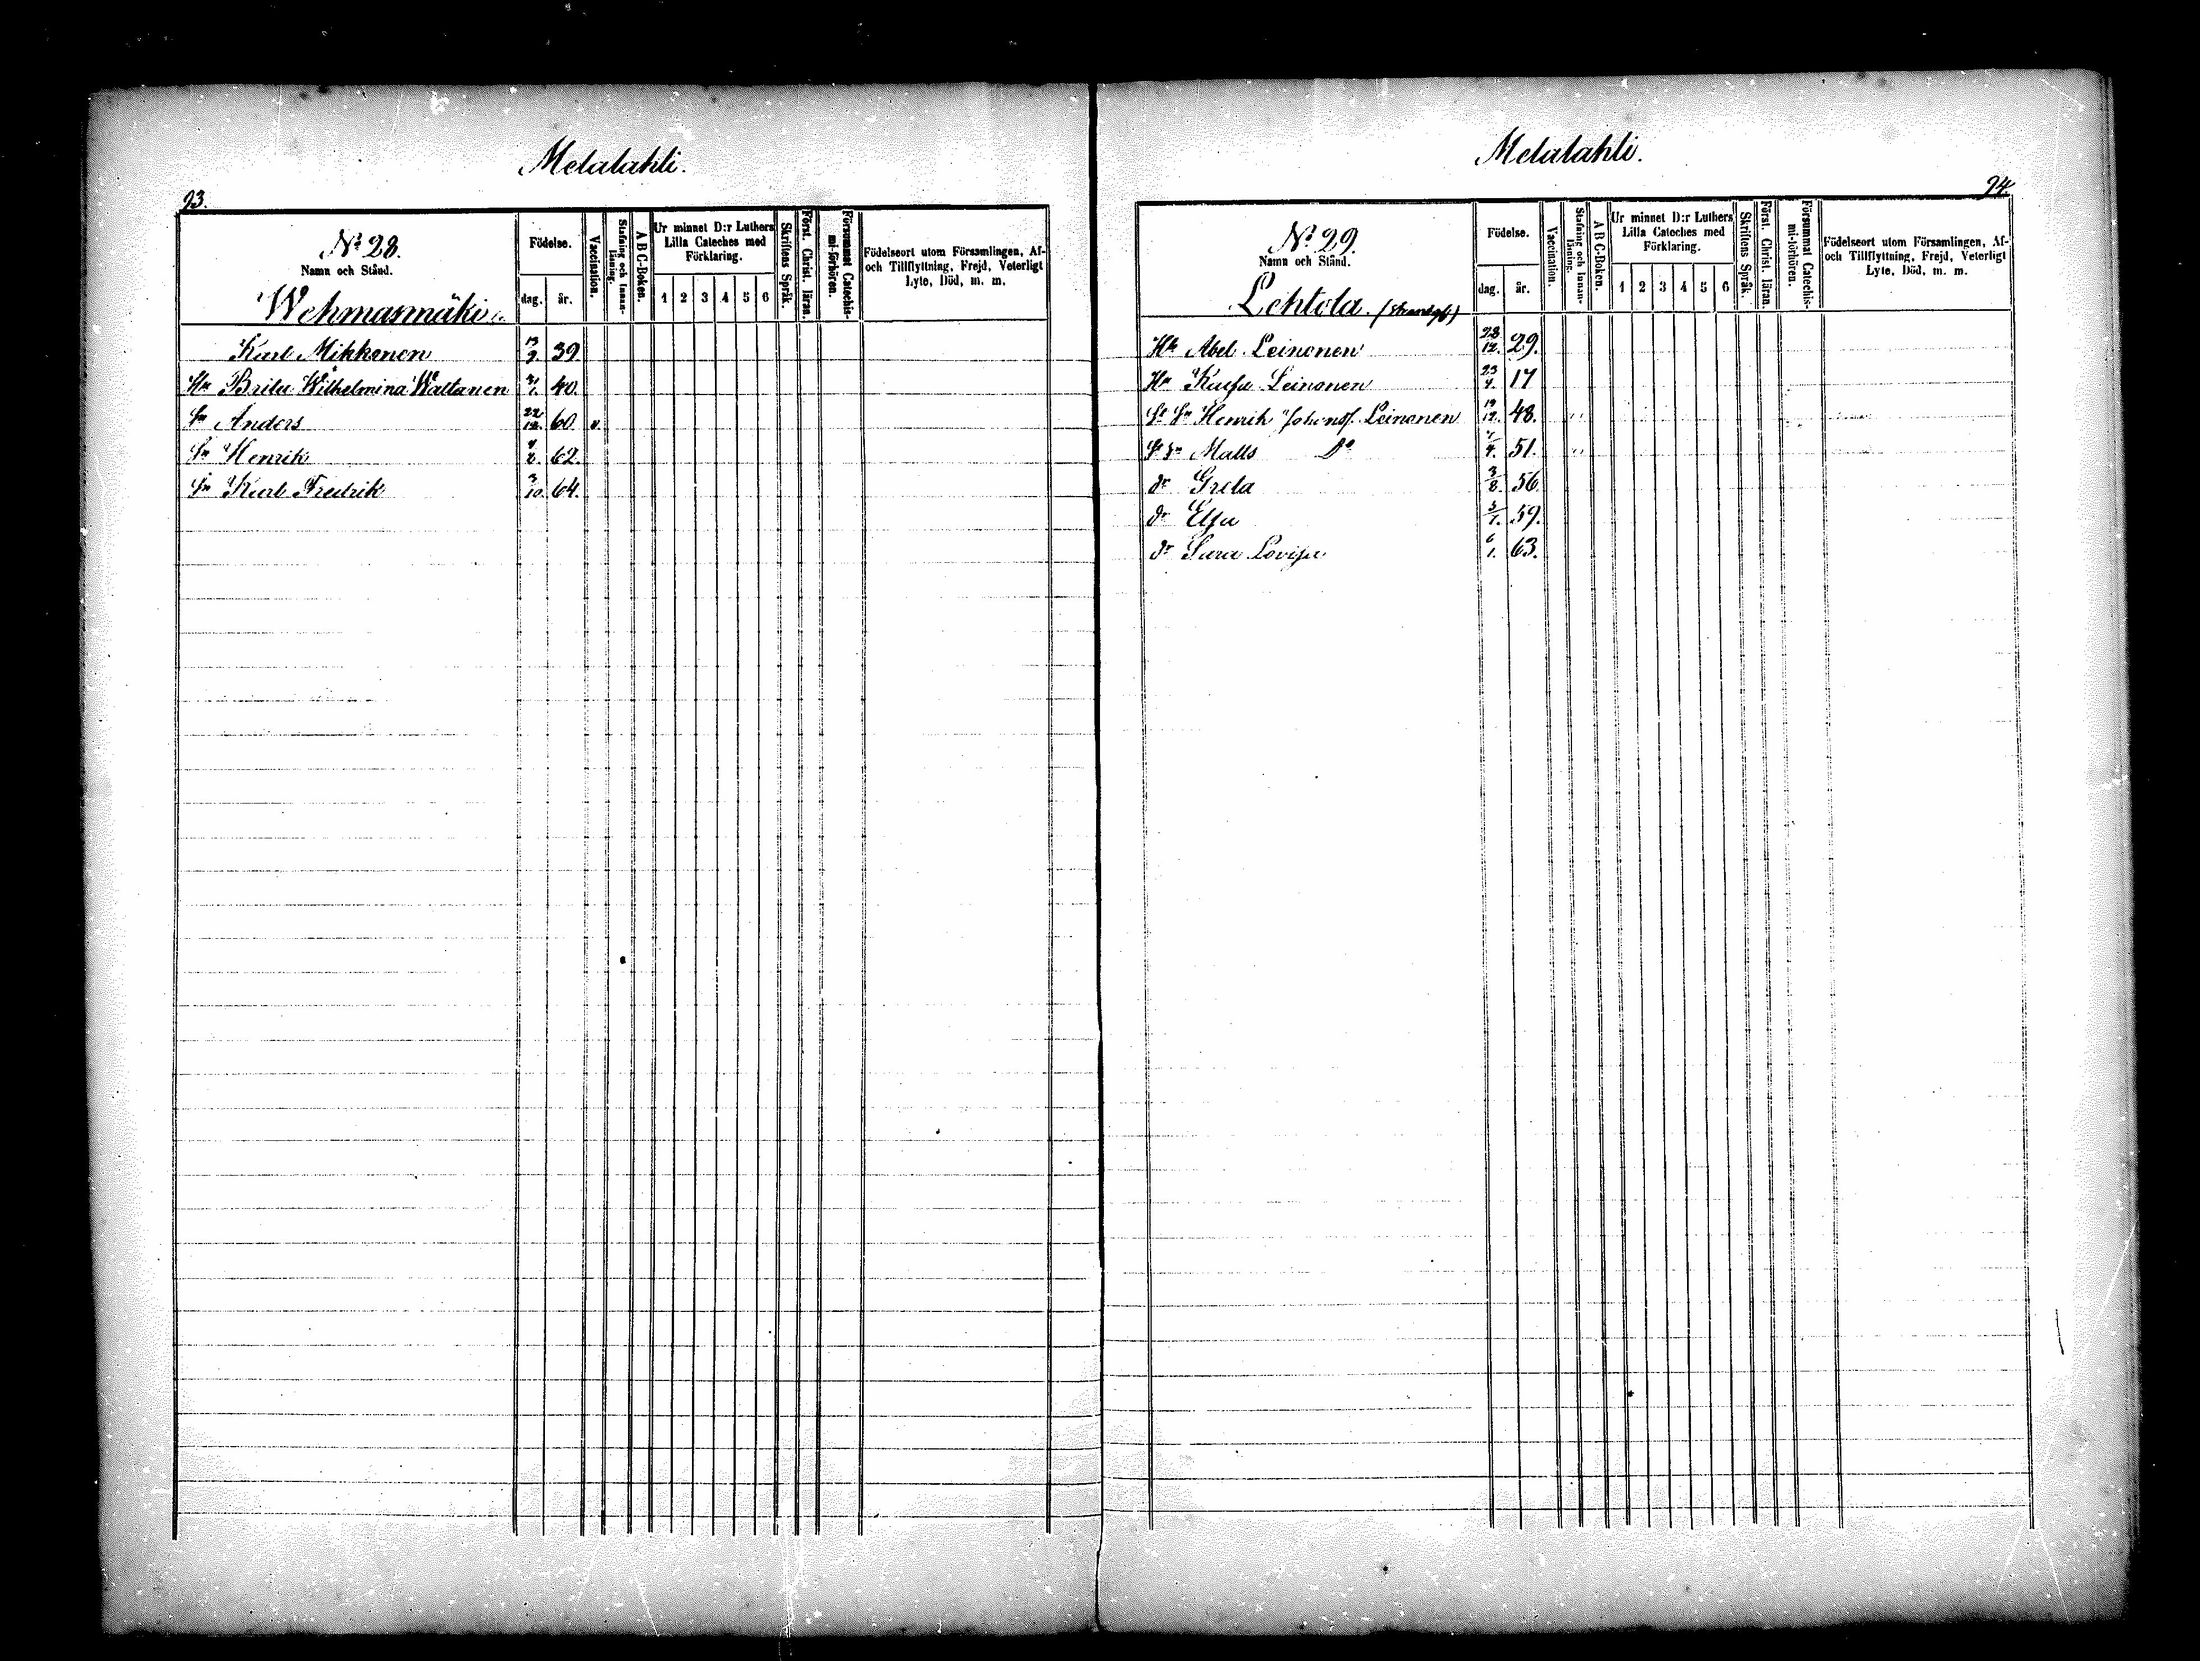 Melalahti.
93.
N:o 28.
Namn och Stånd.
Wehmasmäki
Födelse.
dag. år.
Vaccination.
Stafning och Innan-Läsning.
A B C-Boken.
Ur minnet D:r Luthers Lilla Cateches med Förklaring.
1 2 3 4 5 6
Skriftens Språk.
Först. Christ. läran.
Försummat Catechismi-förhören.
Födelseort utom Församlingen, Af- och Tillflyttning, Frejd, Veterligt Lyte, Död, m. m.
Karl Mikkonen 13/9. 39.
Hu Brita Wilhelmina Waltanen 40.
Sn Anders 22/12. 60. v.
Sn Henrik 4/8. 62.
Sn Karl Fredrik 3/10. 64.
Melalahti.
94.
N:o 29.
Namn och Stånd.
Lehtola.
Födelse.
dag. år.
Vaccination.
Stafning och Innan-Läsning.
A B C-Boken.
Ur minnet D:r Luthers Lilla Cateches med Förklaring.
1 2 3 4 5 6
Skriftens Språk.
Först. Christ. läran.
Försummat Catechismi-förhören.
Födelseort utom Församlingen, Af- och Tillflyttning, Frejd, Veterligt Lyte, Död, m. m.
Abel Leinonen 28/12. 29.
Hu Kaisa Leinonen 23/4. 17
Henrik Johanss. Leinonen 19/12. 48.
Matts Do 51.
dr Greta 3/8. 56.
dr Elsa 5/7. 59.
dr Sara Lovisa 6/1. 63.